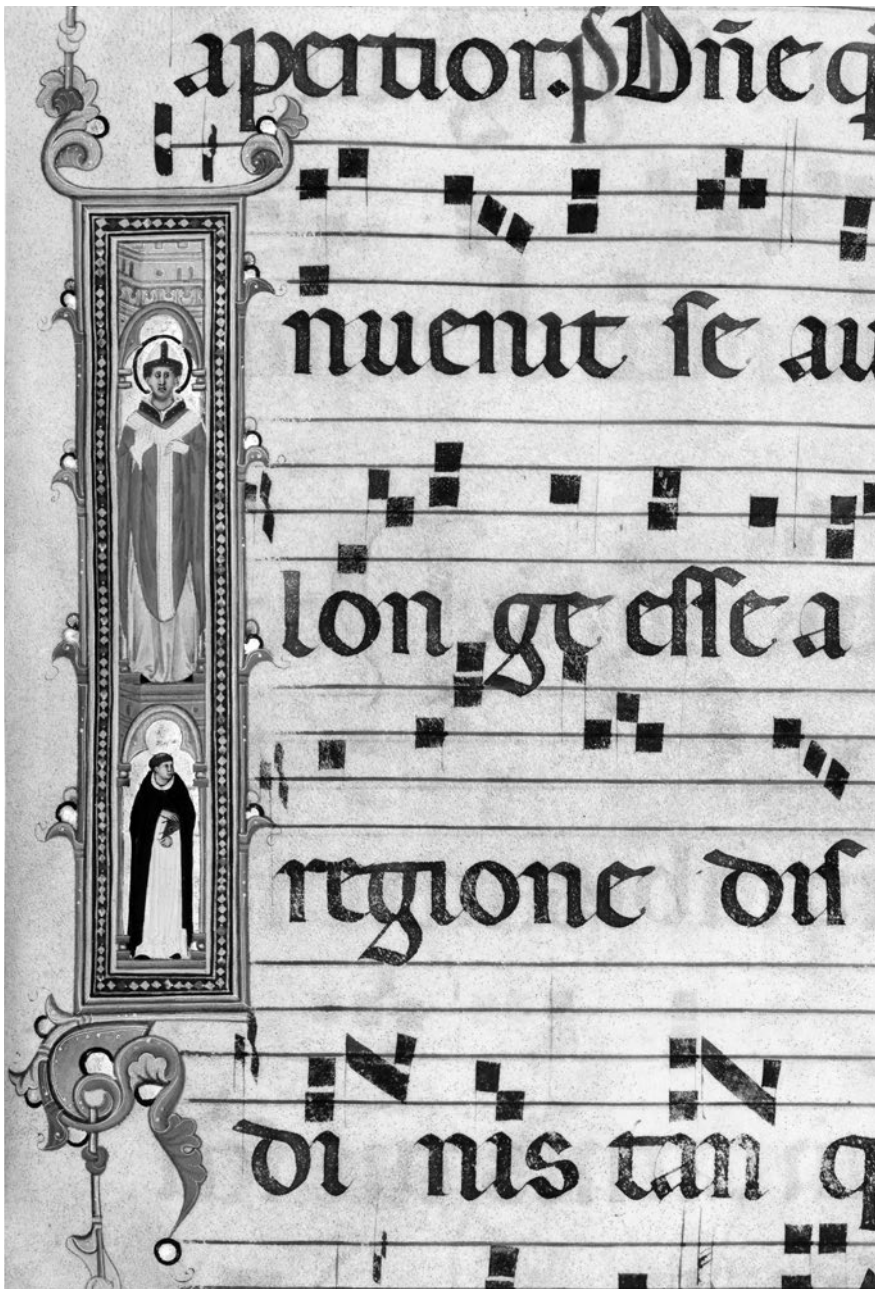 apertior. ps Dñe q
nuenit se au
lon ge esse a
regione dis
di nis tan q